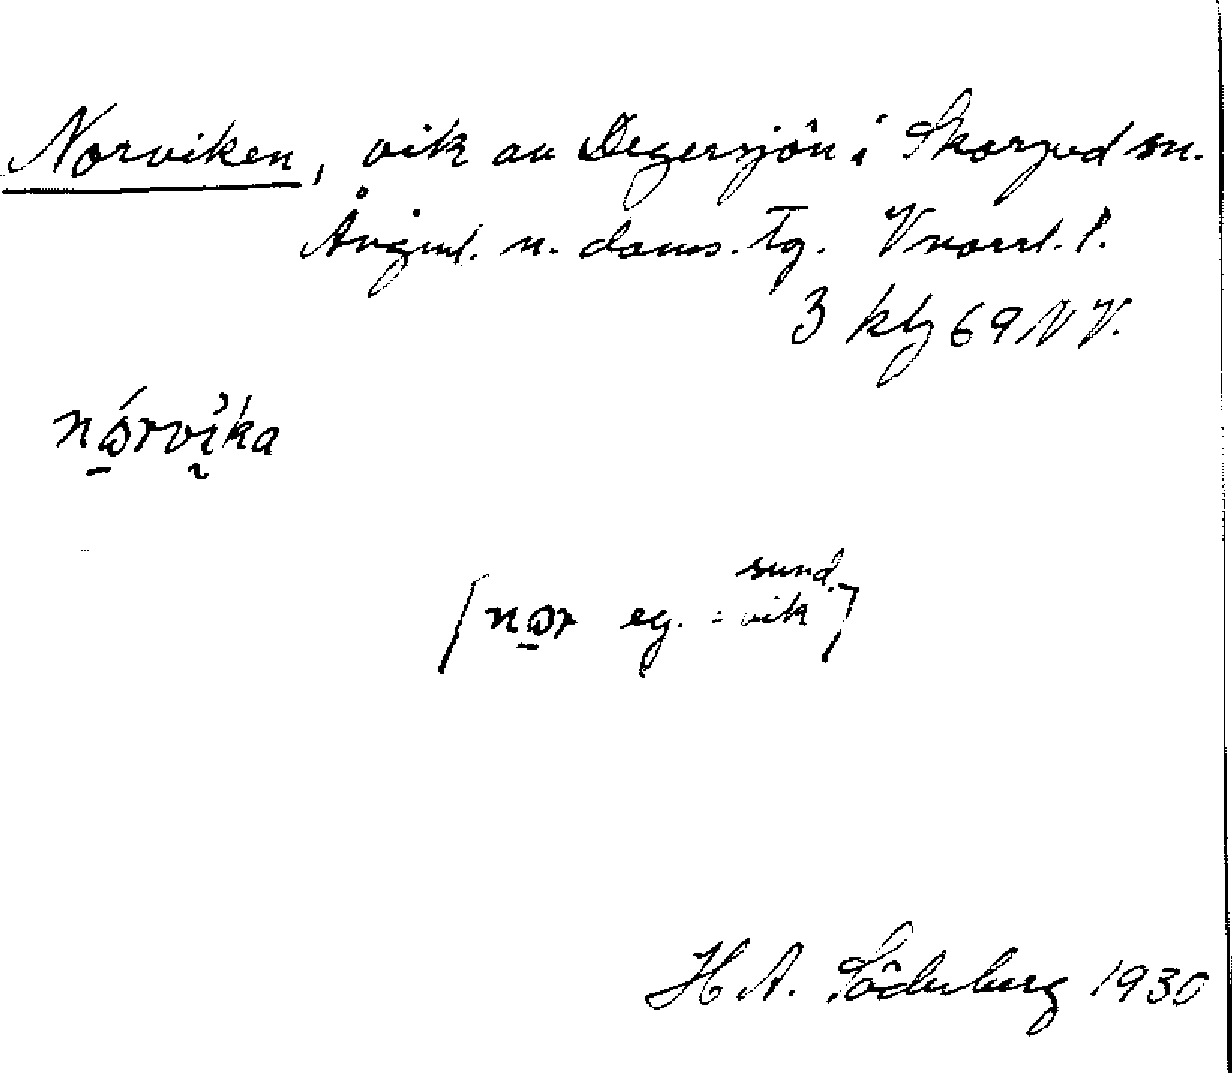 Norviken, vik av Degersjön i Skorped sn.
Ångml. n. doms. Tg. Vnorrl. l.
3 kby 69 NV.
nórvika
sund.
[nor eg. = vik]
H A. Söderberg 1930